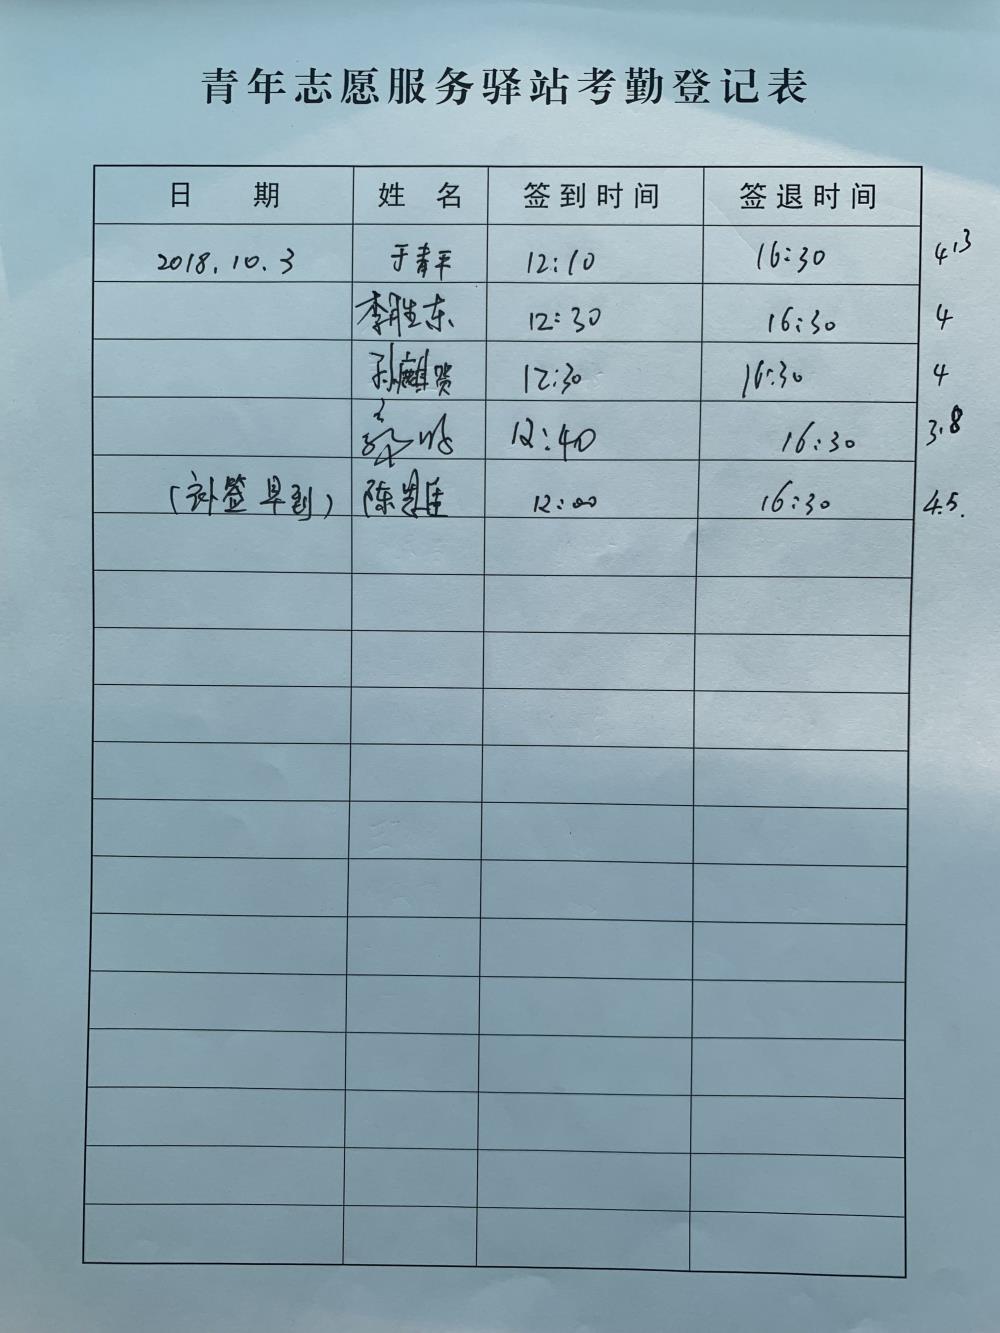 青年志愿服务驿站考勤登记表
日 期 姓 名 签到时间 签退时间
2018.10.3 于青平 12:10 16:30 4.3
李胜东 12:30 16:30 4
孙麒贺 12:30 16:30 4
12:40 16:30 3.8
(补签早到) 陈 12:00 16:30 4.5.